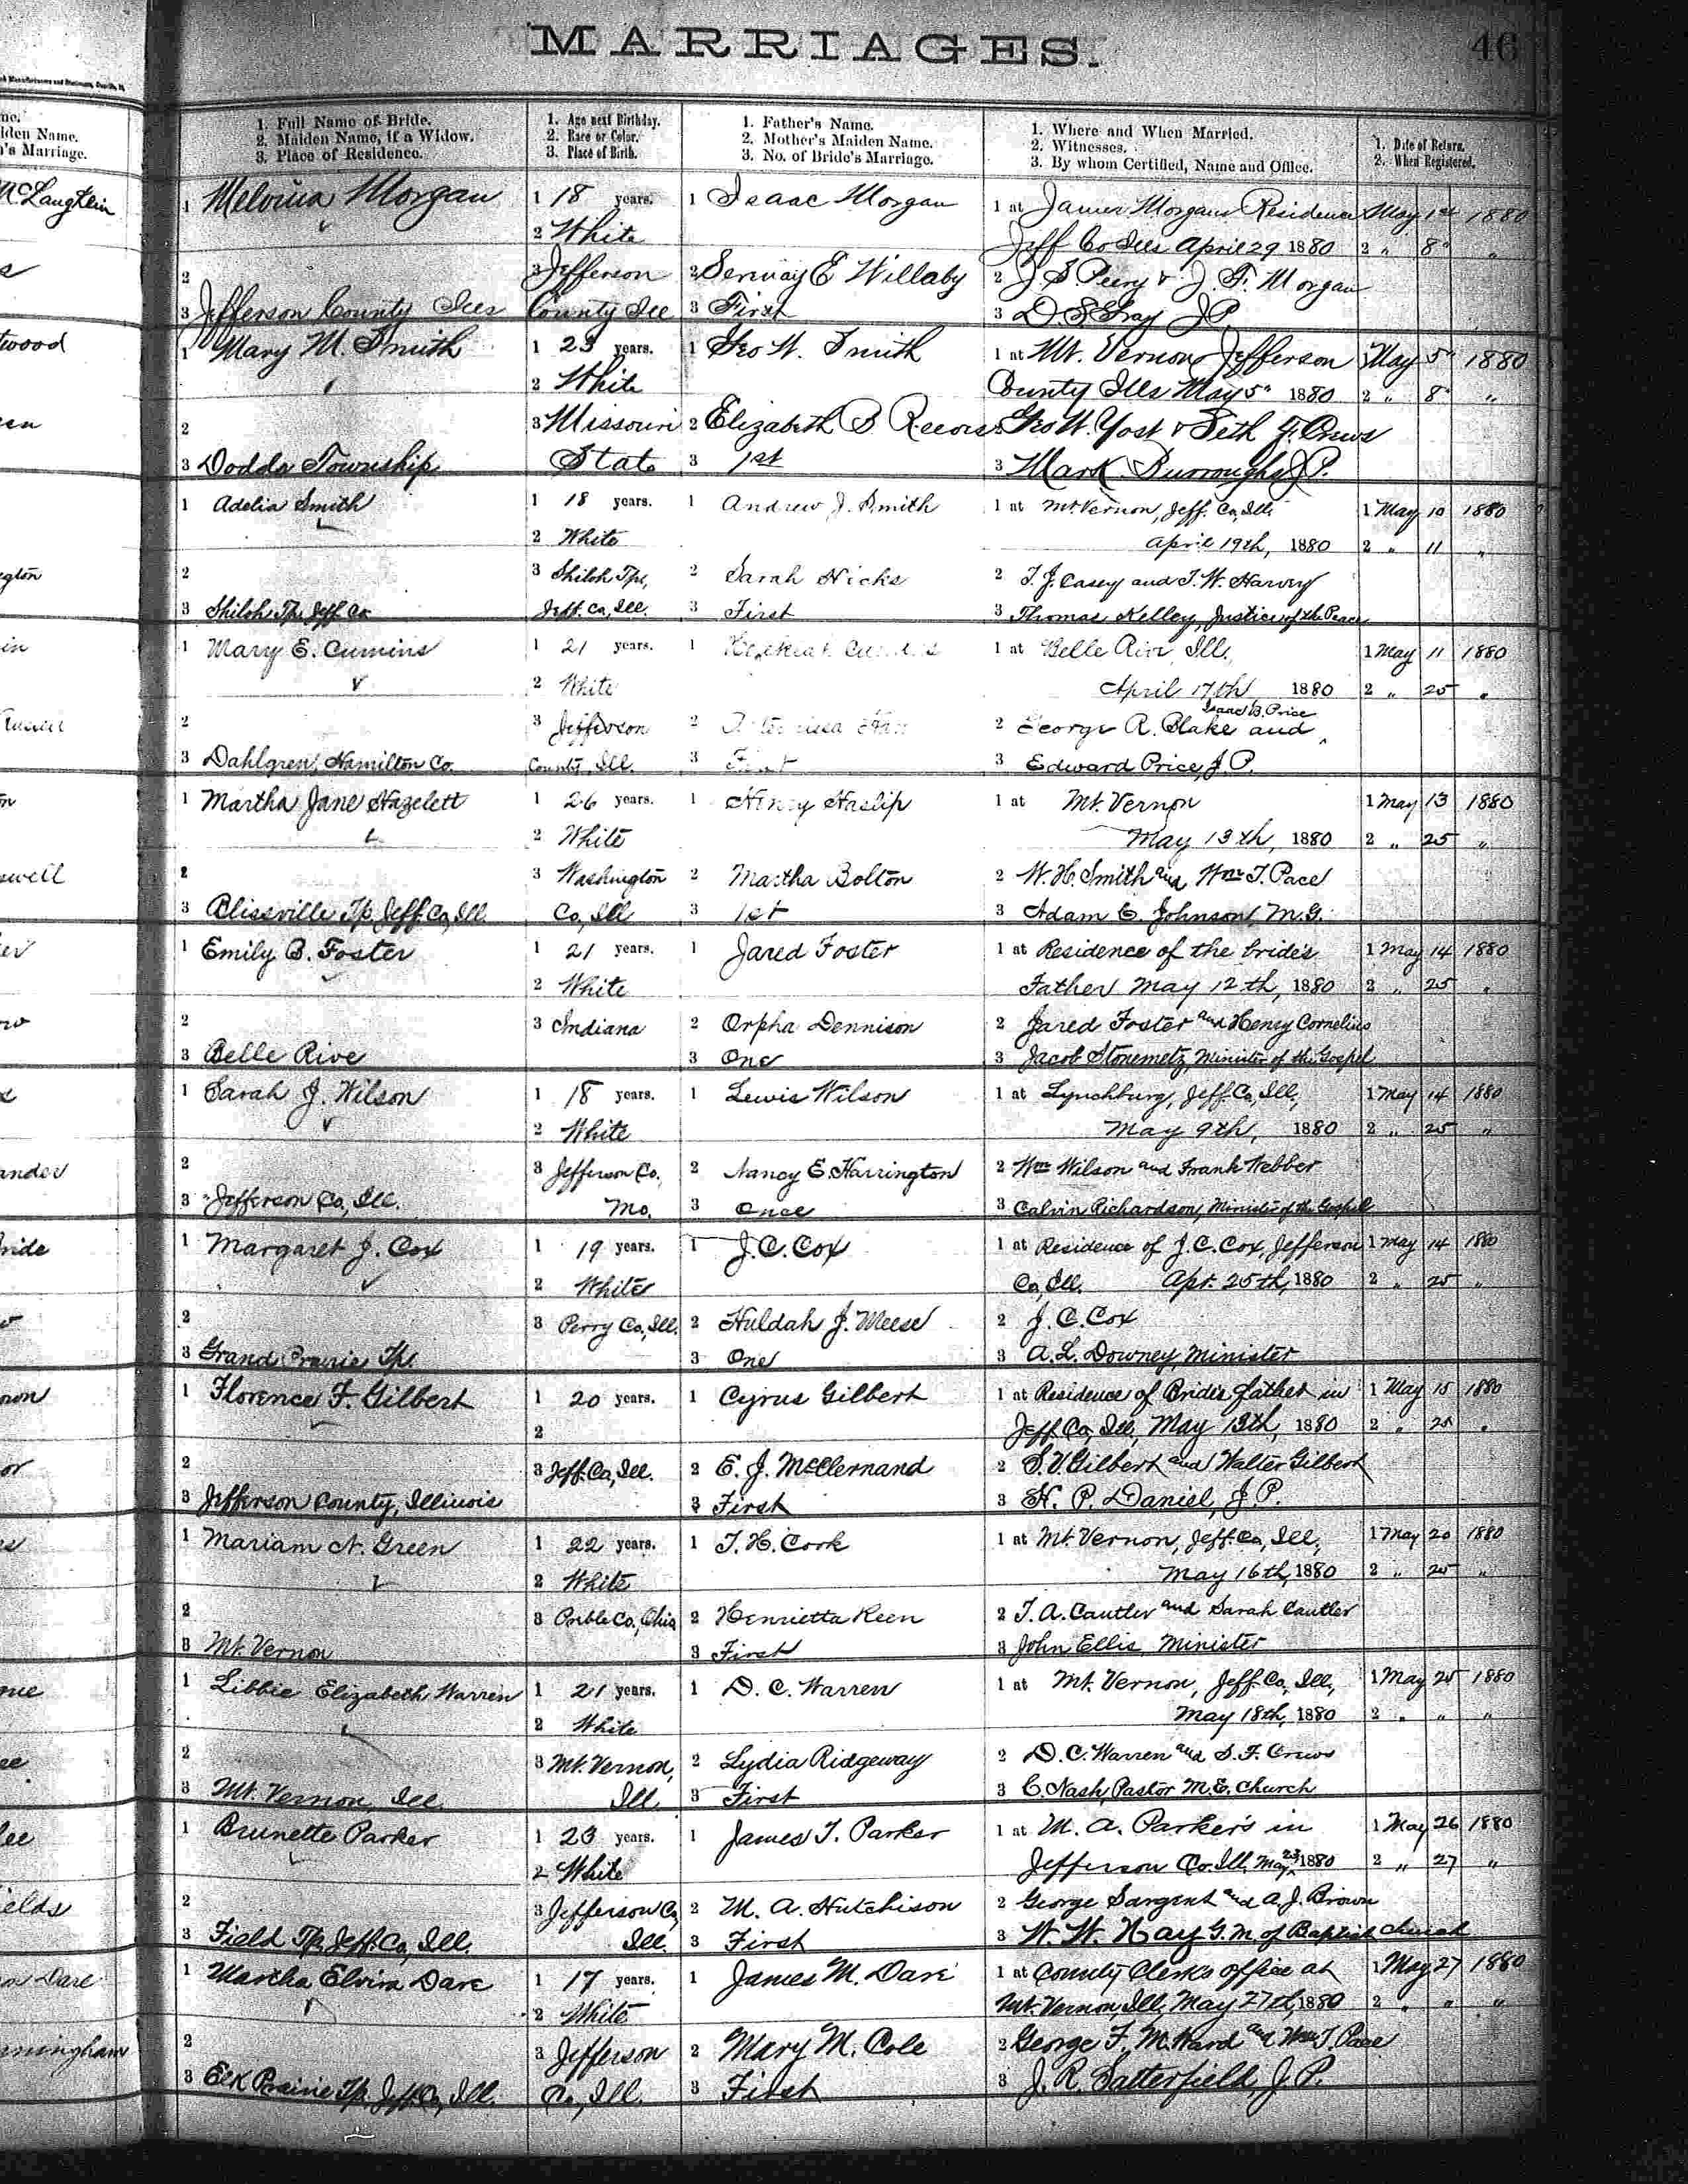 MARRIAGES. 46
1. Full Name of Bride. 1. Age next Birthday. 1. Father's Name. 1. Where and When Married. 1. Date of Return.
2. Maiden Name, if a Widow. 2. Race or Color. 2. Mother's Maiden Name. 2. Witnesses. 2. When Registered.
3. Place of Residence. 3. Place of Birth. 3. No. of Bride's Marriage. 3. By whom Certified, Name and Office.
1 Melvina Morgan 1 18 years. 1 Isaac Morgan 1 at James Morgans Residence May 1st 1880
2 White Jeff Co Ills April 29 1880 2 " 8" "
2 3 Jefferson 2 E Willaby 2 J S Peery & J. F. Morgan
3 Jefferson County Ills County Ill 3 First 3 D. S. Gray J P.
1 Mary M. Smith 1 23 years. 1 Geo W. Smith 1 at Mt. Vernon Jefferson 1 May 5" 1880
2 White County Ills May 5" 1880 2 " 8" "
2 3 Missouri 2 Elizabeth B Geo W. Yost & Seth F. Crews
3 Dodds Township State 3 1st 3 Mark Burroughs J.P.
1 Adelia Smith 1 18 years. 1 Andrew J. Smith 1 at Mt Vernon, Jeff. Co, Ill. 1 May 10 1880
2 White April 19th, 1880 2 " 11 "
2 3 Shiloh Tp, 2 Sarah Hicks 2 T. J. Casey and T. W. Harvey
3 Shiloh Tp. Jeff. Co. Jeff. Co, Ill. 3 First 3 Thomas Kelley, Justice of the Peace
1 Mary E. Cumins 1 21 years. 1 1 at Belle Rive Ill. 1 May 11 1880
2 White April 17th 1880 2 " 25 "
Isaac B. Price
2 3 Jefferson 2 2 George R. Blake and ^
3 Dahlgren, Hamilton Co. County, Ill. 3 First 3 Edward Price, J. P.
1 Martha Jane Hazelett 1 26 years. 1 Henry Haslip 1 at Mt. Vernon 1 May 13 1880
2 White May 13th, 1880 2 " 25 "
2 3 Washington 2 Martha Bolton 2 W. H. Smith and Wm T. Pace
3 Blissville Tp. Jeff. Co, Ill. Co, Ill 3 1st 3 Adam C. Johnson, M.G.
1 Emily B. Foster 1 21 years. 1 Jared Foster 1 at Residence of the bride's 1 May 14 1880
2 White Father May 12th, 1880 2 " 25 "
2 3 Indiana 2 Orpha Dennison 2 Jared Foster and Henry Cornelius
3 Belle Rive 3 One 3 Jacob Stonemetz, Minister of the Gospel
1 Sarah J. Wilson 1 18 years. 1 Lewis Wilson 1 at Lynchburg, Jeff. Co, Ill., 1 May 14 1880
2 White May 9th, 1880 2 " 25 "
2 3 Jefferson Co. 2 Nancy E. Harrington 2 Wm Wilson and Frank Webber
3 Jefferson Co, Ill. Mo. 3 Once 3 Calvin Richardson, Minister of the Gospel
1 Margaret J. Cox 1 19 years. 1 J. C. Cox 1 at Residence of J. C. Cox, Jefferson 1 May 14 1880
2 White Co, Ill. Apr. 25th, 1880 2 " 25 "
2 3 Perry Co, Ill. 2 Huldah J. Meese 2 J. C. Cox
3 Grand Prairie Tp. 3 One 3 A. L. Downey, Minister
1 Florence F. Gilbert 1 20 years. 1 Cyrus Gilbert 1 at Residence of Brides father in 1 May 15 1880
2 Jeff. Co, Ill, May 13th, 1880 2 " 25 "
2 3 Jeff. Co, Ill. 2 E. J. McClernand 2 S. V. Gilbert and Walter Gilbert
3 Jefferson County, Illinois 3 First 3 H. P. Daniel, J. P.
1 Mariam N. Green 1 22 years. 1 T. H. Cook 1 at Mt. Vernon, Jeff. Co, Ill, 1 May 20 1880
2 White May 16th, 1880 2 " 25 "
2 3 Preble Co., Ohio 2 Henrietta Keen 2 T. A. Cautler and Sarah Cautler
3 Mt. Vernon 3 First 3 John Ellis, Minister
1 Libbie Elizabeth Warren 1 21 years. 1 D. C. Warren 1 at Mt. Vernon, Jeff. Co, Ill, 1 May 25 1880
2 White May 18th, 1880 2 " " "
2 3 Mt. Vernon, 2 Lydia Ridgeway 2 D. C. Warren and S. F. Crews
3 Mt. Vernon, Ill. Ill. 3 First 3 C. Nash, Pastor M. E. Church
1 Brunette Parker 1 23 years. 1 James T. Parker 1 at M. A. Parker's in 1 May 26 1880
2 White Jefferson Co. Ill, May 23, 1880 2 " 27 "
2 3 Jefferson Co, 2 M. A. Hutchison 2 George Sargent and A. J. Brown
3 Field Tp. Jeff. Co, Ill. Ill. 3 First 3 W. W. Hay G. M. of Baptist church
1 Martha Elvira Dare 1 17 years. 1 James M. Dare 1 at County Clerk's office at 1 May 27 1880
2 White Mt. Vernon Ill, May 27th, 1880 2 " " "
2 3 Jefferson 2 Mary M. Cole 2 George F. M. Ward and Wm T. Pace
3 Elk Prairie Tp. Jeff. Co, Ill. Co., Ill. 3 First 3 J. R. Satterfield, J. P.